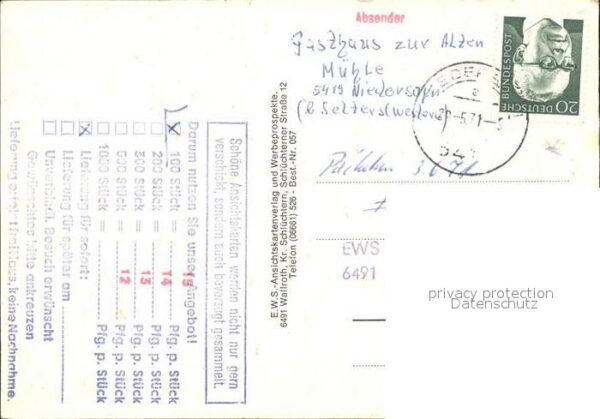 Absender
Gasthaus zur Alten
Mühle
5419 Niedersayn
(b. Selters (Westerw)
DEUTSCHE
BUNDESPOST
20
-5.71-
541
3.6.71
EWS
6491
privacy protection
Datenschutz
E.W.S.-Ansichtskartenverlag und Werbeprospekte,
6491 Wallroth, Kr. Schlüchtern, Schlüchterner Straße 12
Telefon (06661) 526 - Best.-Nr. 057
Schöne Ansichtskarten werden nicht nur gern
verschickt, sondern auch bevorzugt gesammelt.
Darum nutzen Sie unser Angebot!
X 100 Stück = 15 Pfg. p. Stück
200 Stück = 14 Pfg. p. Stück
300 Stück = 13 Pfg. p. Stück
500 Stück = 12 Pfg. p. Stück
1000 Stück = Pfg. p. Stück
X Lieferung für sofort:
Lieferung für später am
Unverbindl. Besuch erwünscht
Gewünschtes bitte ankreuzen
Lieferung erfolgt frei Haus, keine Nachnahme.